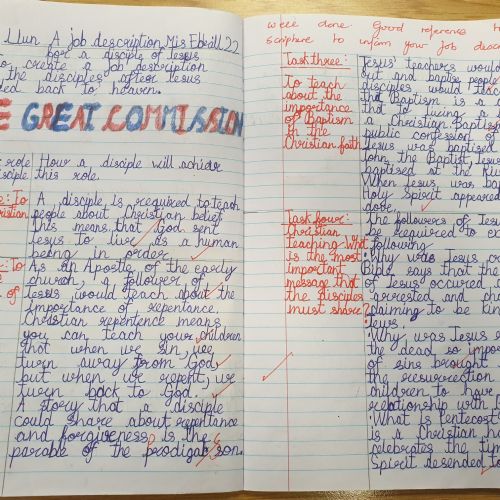 Llun A job description Mis Ebrill 22
for a disciple of Jesus
to create a job description
the disciples after Jesus
back to heaven.
E GREAT COMMISSION
role How a disciple will achieve
disciple this role.
A disciple is required to teach
Christian people about Christian belief
this means that God sent
Jesus to live as a human
being in order
To As an Apostle of the early
church, a follower of
of Jesus would teach about the
importance of repentance.
Christian repentence means
you can teach your children
that when we sin we
turn away from God,
but when we repent, we
turn back to God.
A story that a disciple
could share about repentance
and forgiveness is the
parable of the prodigal son.
well done. Good reference to
scripture to inform your job
Task three:
To teach
about the
importance
of Baptism
in the
Christian faith
Jesus' teachers would
out and baptise people
disciples, would
that Baptism is a
to living a
a Christian Baptism
public confession of
Jesus was baptised
John the Baptist, Jesus
baptised at the River
When Jesus was
Holy Spirit appeared
dove.
Task four:
Christian
teaching What
is the most
important
message that
the disciples
must share?
the followers of Jesus
be required to
following
Why was Jesus
Bible says that the
of Jesus occurred
arrested and
claiming to be king
Jews.
Why was Jesus
the dead so important
of sins brought
the resurrection
children to have
relationship with
What is Pentecost
is a Christian
celebrates the time
Spirit desended to